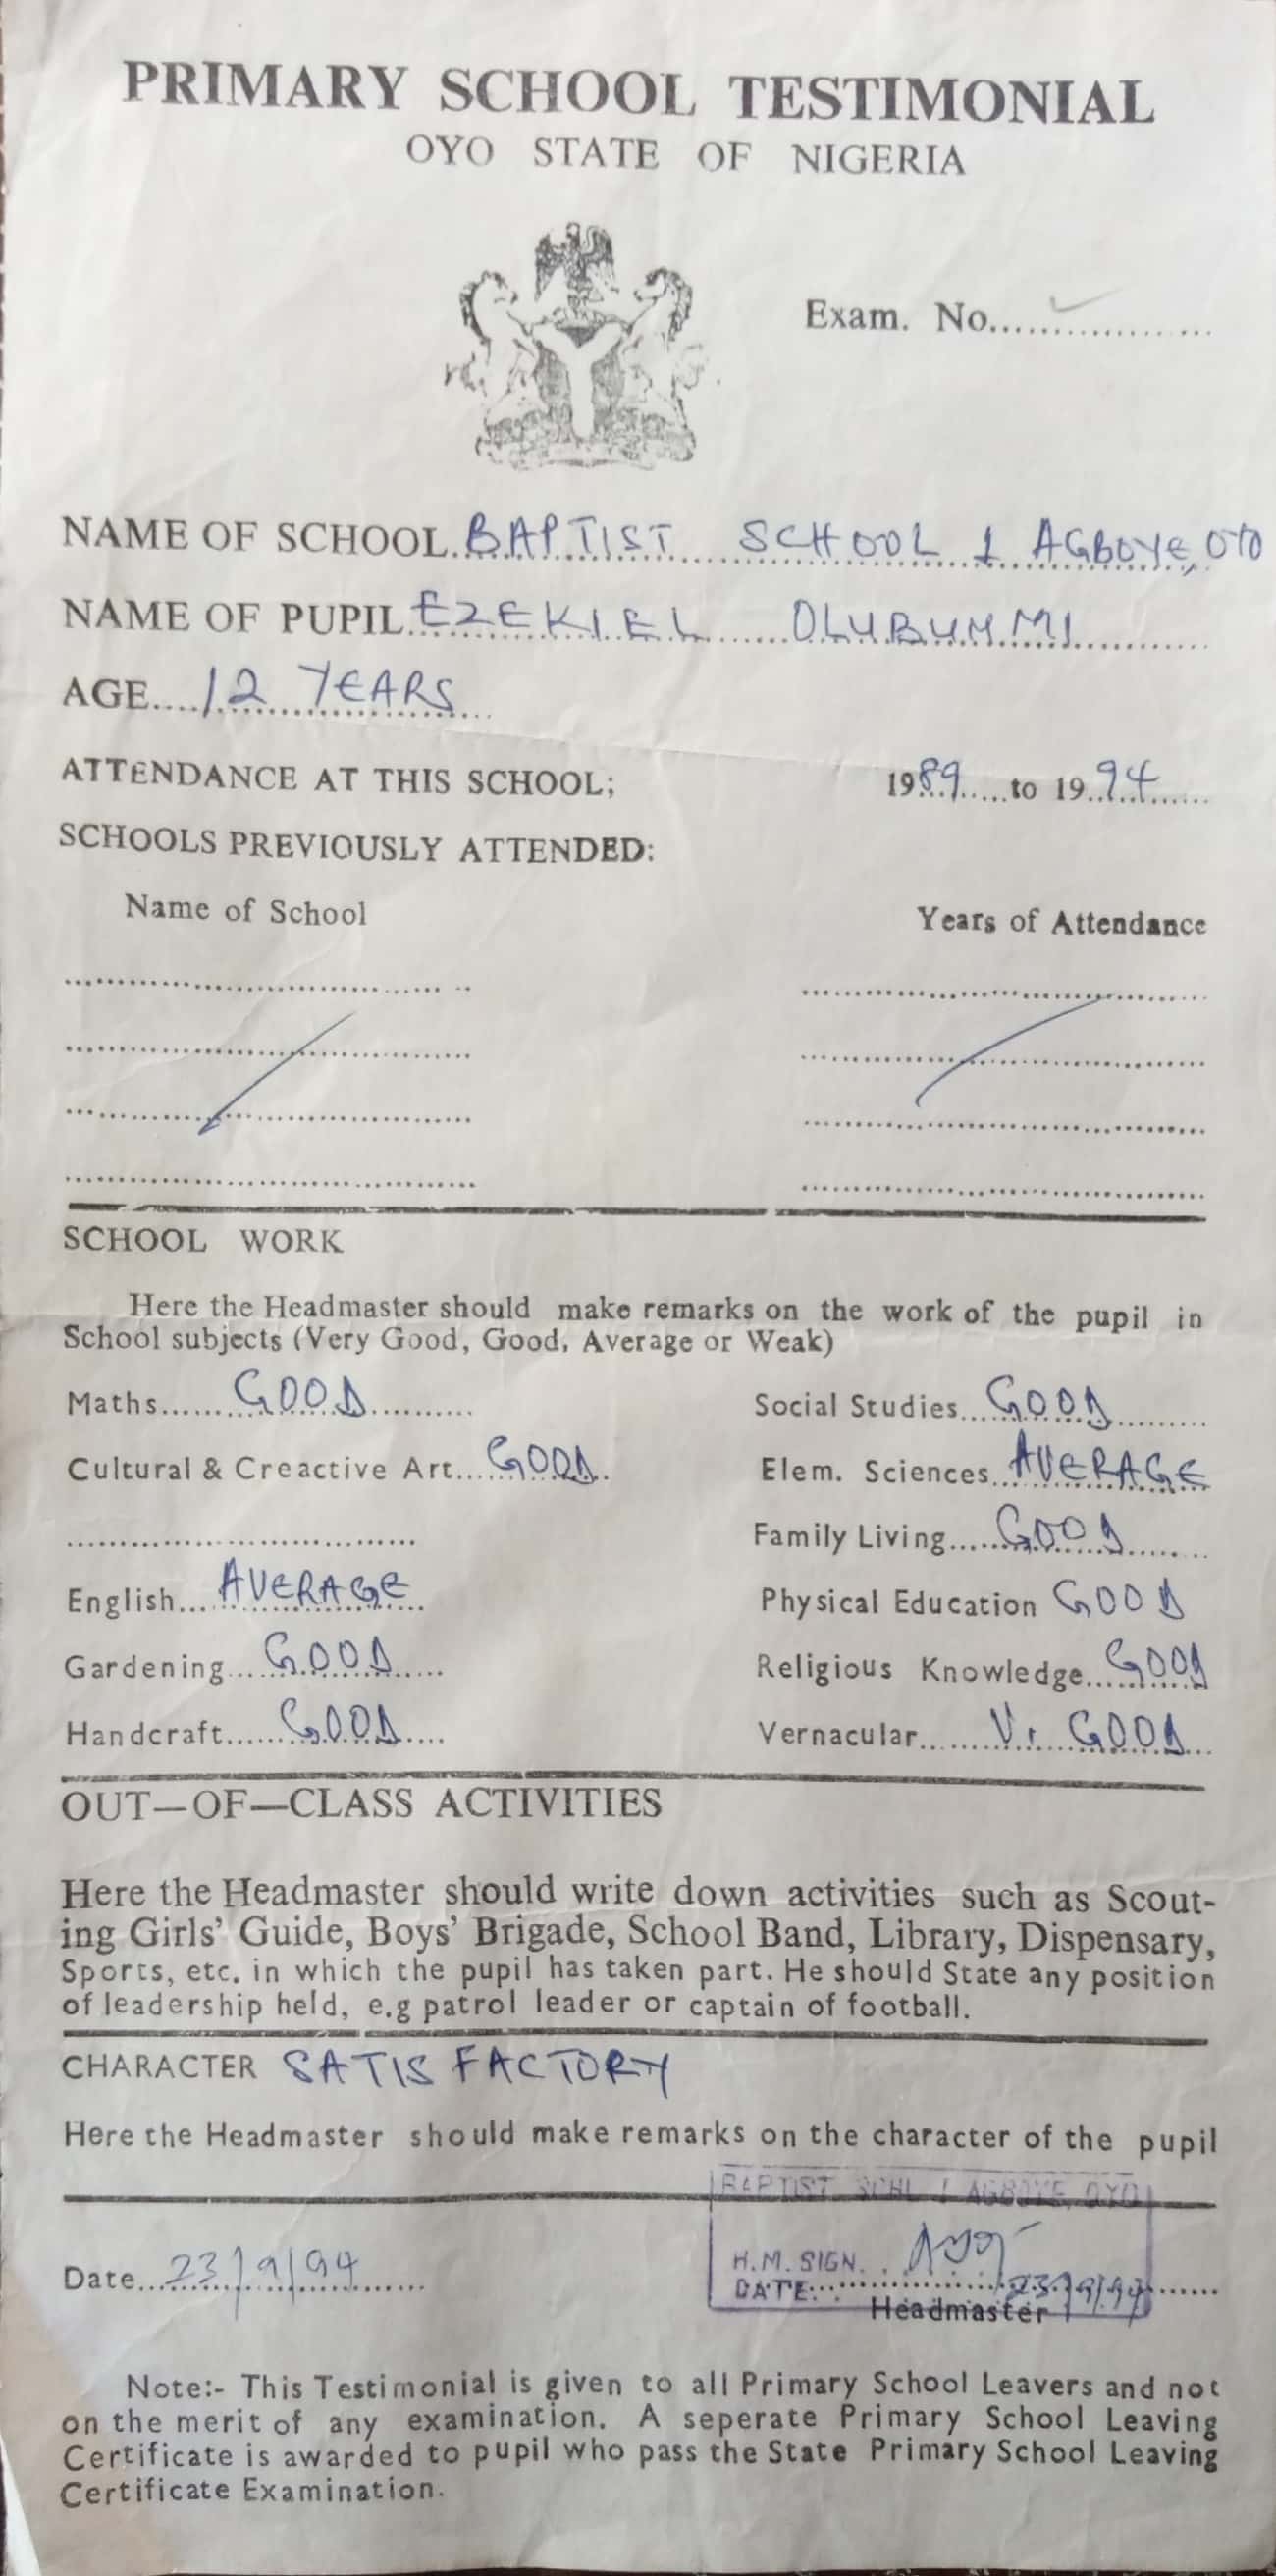 PRIMARY SCHOOL TESTIMONIAL
OYO STATE OF NIGERIA
Exam. No....................
NAME OF SCHOOL. BAPTIST SCHOOL 1 AGBOYE, OYO
NAME OF PUPIL EZEKIEL OLUBUNMI
AGE.... 12 YEARS
ATTENDANCE AT THIS SCHOOL; 1989 to 1994
SCHOOLS PREVIOUSLY ATTENDED:
Name of School Years of Attendance
SCHOOL WORK
Here the Headmaster should make remarks on the work of the pupil in
School subjects (Very Good, Good, Average or Weak)
Maths...... GOOD Social Studies... GOOD
Cultural & Creactive Art.... GOOD Elem. Sciences... AVERAGE
Family Living..... GOOD
English.... AVERAGE Physical Education GOOD
Gardening... GOOD Religious Knowledge... GOOD
Handcraft...... GOOD Vernacular...... V. GOOD
OUT—OF—CLASS ACTIVITIES
Here the Headmaster should write down activities such as Scout-
ing Girls' Guide, Boys' Brigade, School Band, Library, Dispensary,
Sports, etc. in which the pupil has taken part. He should State any position
of leadership held, e.g patrol leader or captain of football.
CHARACTER SATISFACTORY
Here the Headmaster should make remarks on the character of the pupil
BAPTIST SCHL 1 AGBOYE, OYO
H.M. SIGN.
Date... 23/9/94 DATE:... 23/9/94
Headmaster
Note:- This Testimonial is given to all Primary School Leavers and not
on the merit of any examination. A seperate Primary School Leaving
Certificate is awarded to pupil who pass the State Primary School Leaving
Certificate Examination.